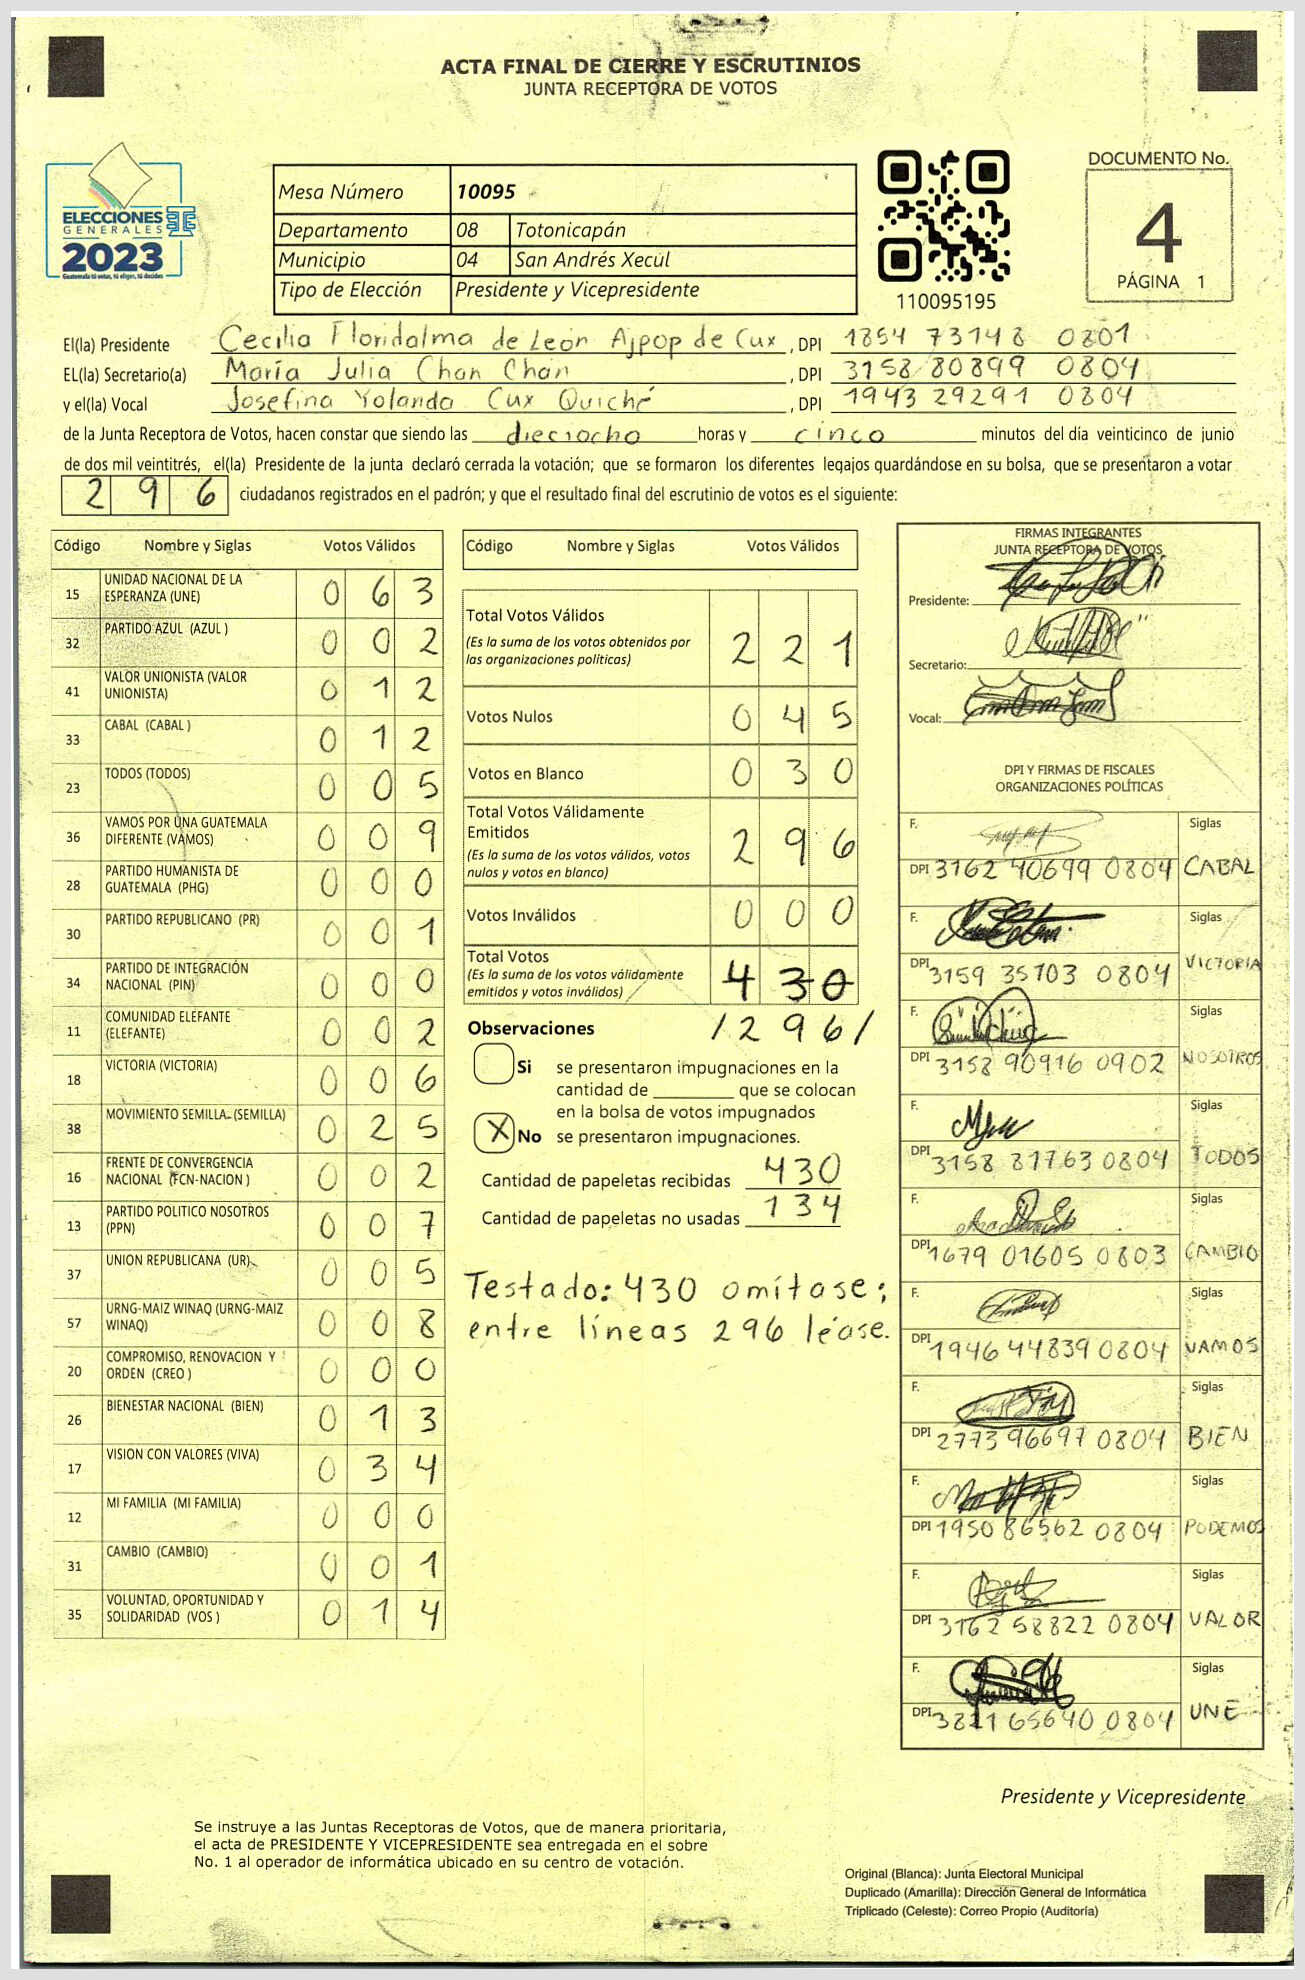 ACTA FINAL DE CIERRE Y ESCRUTINIOS
JUNTA RECEPTORA DE VOTOS
ELECCIONES
GENERALES
2023
Guatemala tú votas, tú eliges, tú decides
Mesa Número 10095
Departamento 08 Totonicapán
Municipio 04 San Andrés Xecul
Tipo de Elección Presidente y Vicepresidente
110095195
DOCUMENTO No.
4
PÁGINA 1
El(la) Presidente Cecilia Floridalma de León Ajpop de Cux , DPI 1854 73148 0801
EL(la) Secretario(a) María Julia Chan Chan , DPI 3158 80899 0804
y el(la) Vocal Josefina Yolanda Cux Quiché , DPI 1943 29291 0804
de la Junta Receptora de Votos, hacen constar que siendo las dieciocho horas y cinco minutos del día veinticinco de junio
de dos mil veintitrés, el(la) Presidente de la junta declaró cerrada la votación; que se formaron los diferentes legajos guardándose en su bolsa, que se presentaron a votar
296 ciudadanos registrados en el padrón; y que el resultado final del escrutinio de votos es el siguiente:
Código Nombre y Siglas Votos Válidos
15 UNIDAD NACIONAL DE LA ESPERANZA (UNE) 0 6 3
32 PARTIDO AZUL (AZUL ) 0 0 2
41 VALOR UNIONISTA (VALOR UNIONISTA) 0 1 2
33 CABAL (CABAL ) 0 1 2
23 TODOS (TODOS) 0 0 5
36 VAMOS POR UNA GUATEMALA DIFERENTE (VAMOS) 0 0 9
28 PARTIDO HUMANISTA DE GUATEMALA (PHG) 0 0 0
30 PARTIDO REPUBLICANO (PR) 0 0 1
34 PARTIDO DE INTEGRACIÓN NACIONAL (PIN) 0 0 0
11 COMUNIDAD ELEFANTE (ELEFANTE) 0 0 2
18 VICTORIA (VICTORIA) 0 0 6
38 MOVIMIENTO SEMILLA (SEMILLA) 0 2 5
16 FRENTE DE CONVERGENCIA NACIONAL (FCN-NACION ) 0 0 2
13 PARTIDO POLITICO NOSOTROS (PPN) 0 0 7
37 UNION REPUBLICANA (UR) 0 0 5
57 URNG-MAIZ WINAQ (URNG-MAIZ WINAQ) 0 0 8
20 COMPROMISO, RENOVACION Y ORDEN (CREO ) 0 0 0
26 BIENESTAR NACIONAL (BIEN) 0 1 3
17 VISION CON VALORES (VIVA) 0 3 4
12 MI FAMILIA (MI FAMILIA) 0 0 0
31 CAMBIO (CAMBIO) 0 0 1
35 VOLUNTAD, OPORTUNIDAD Y SOLIDARIDAD (VOS ) 0 1 4
Código Nombre y Siglas Votos Válidos
Total Votos Válidos 2 2 1
(Es la suma de los votos obtenidos por
las organizaciones políticas)
Votos Nulos 0 4 5
Votos en Blanco 0 3 0
Total Votos Válidamente
Emitidos 2 9 6
(Es la suma de los votos válidos, votos
nulos y votos en blanco)
Votos Inválidos 0 0 0
Total Votos 4 3 0
(Es la suma de los votos válidamente
emitidos y votos inválidos)
/ 2 9 6 /
Observaciones
Si se presentaron impugnaciones en la
cantidad de ________ que se colocan
en la bolsa de votos impugnados
X No se presentaron impugnaciones.
Cantidad de papeletas recibidas 430
Cantidad de papeletas no usadas 134
Testado: 430 omítase;
entre líneas 296 léase.
FIRMAS INTEGRANTES
JUNTA RECEPTORA DE VOTOS
Presidente:
Secretario:
Vocal:
DPI Y FIRMAS DE FISCALES
ORGANIZACIONES POLÍTICAS
F. Siglas
DPI 3162 40699 0804 CABAL
F. Siglas
DPI 3159 35703 0804 VICTORIA
F. Siglas
DPI 3158 90916 0902 NOSOTROS
F. Siglas
DPI 3158 81763 0804 TODOS
F. Siglas
DPI 1679 01605 0803 CAMBIO
F. Siglas
DPI 1946 44839 0804 VAMOS
F. Siglas
DPI 2773 96697 0804 BIEN
F. Siglas
DPI 1950 86562 0804 PODEMOS
F. Siglas
DPI 3162 58822 0804 VALOR
F. Siglas
DPI 3821 65640 0804 UNE
Presidente y Vicepresidente
Se instruye a las Juntas Receptoras de Votos, que de manera prioritaria,
el acta de PRESIDENTE Y VICEPRESIDENTE sea entregada en el sobre
No. 1 al operador de informática ubicado en su centro de votación.
Original (Blanca): Junta Electoral Municipal
Duplicado (Amarilla): Dirección General de Informática
Triplicado (Celeste): Correo Propio (Auditoría)